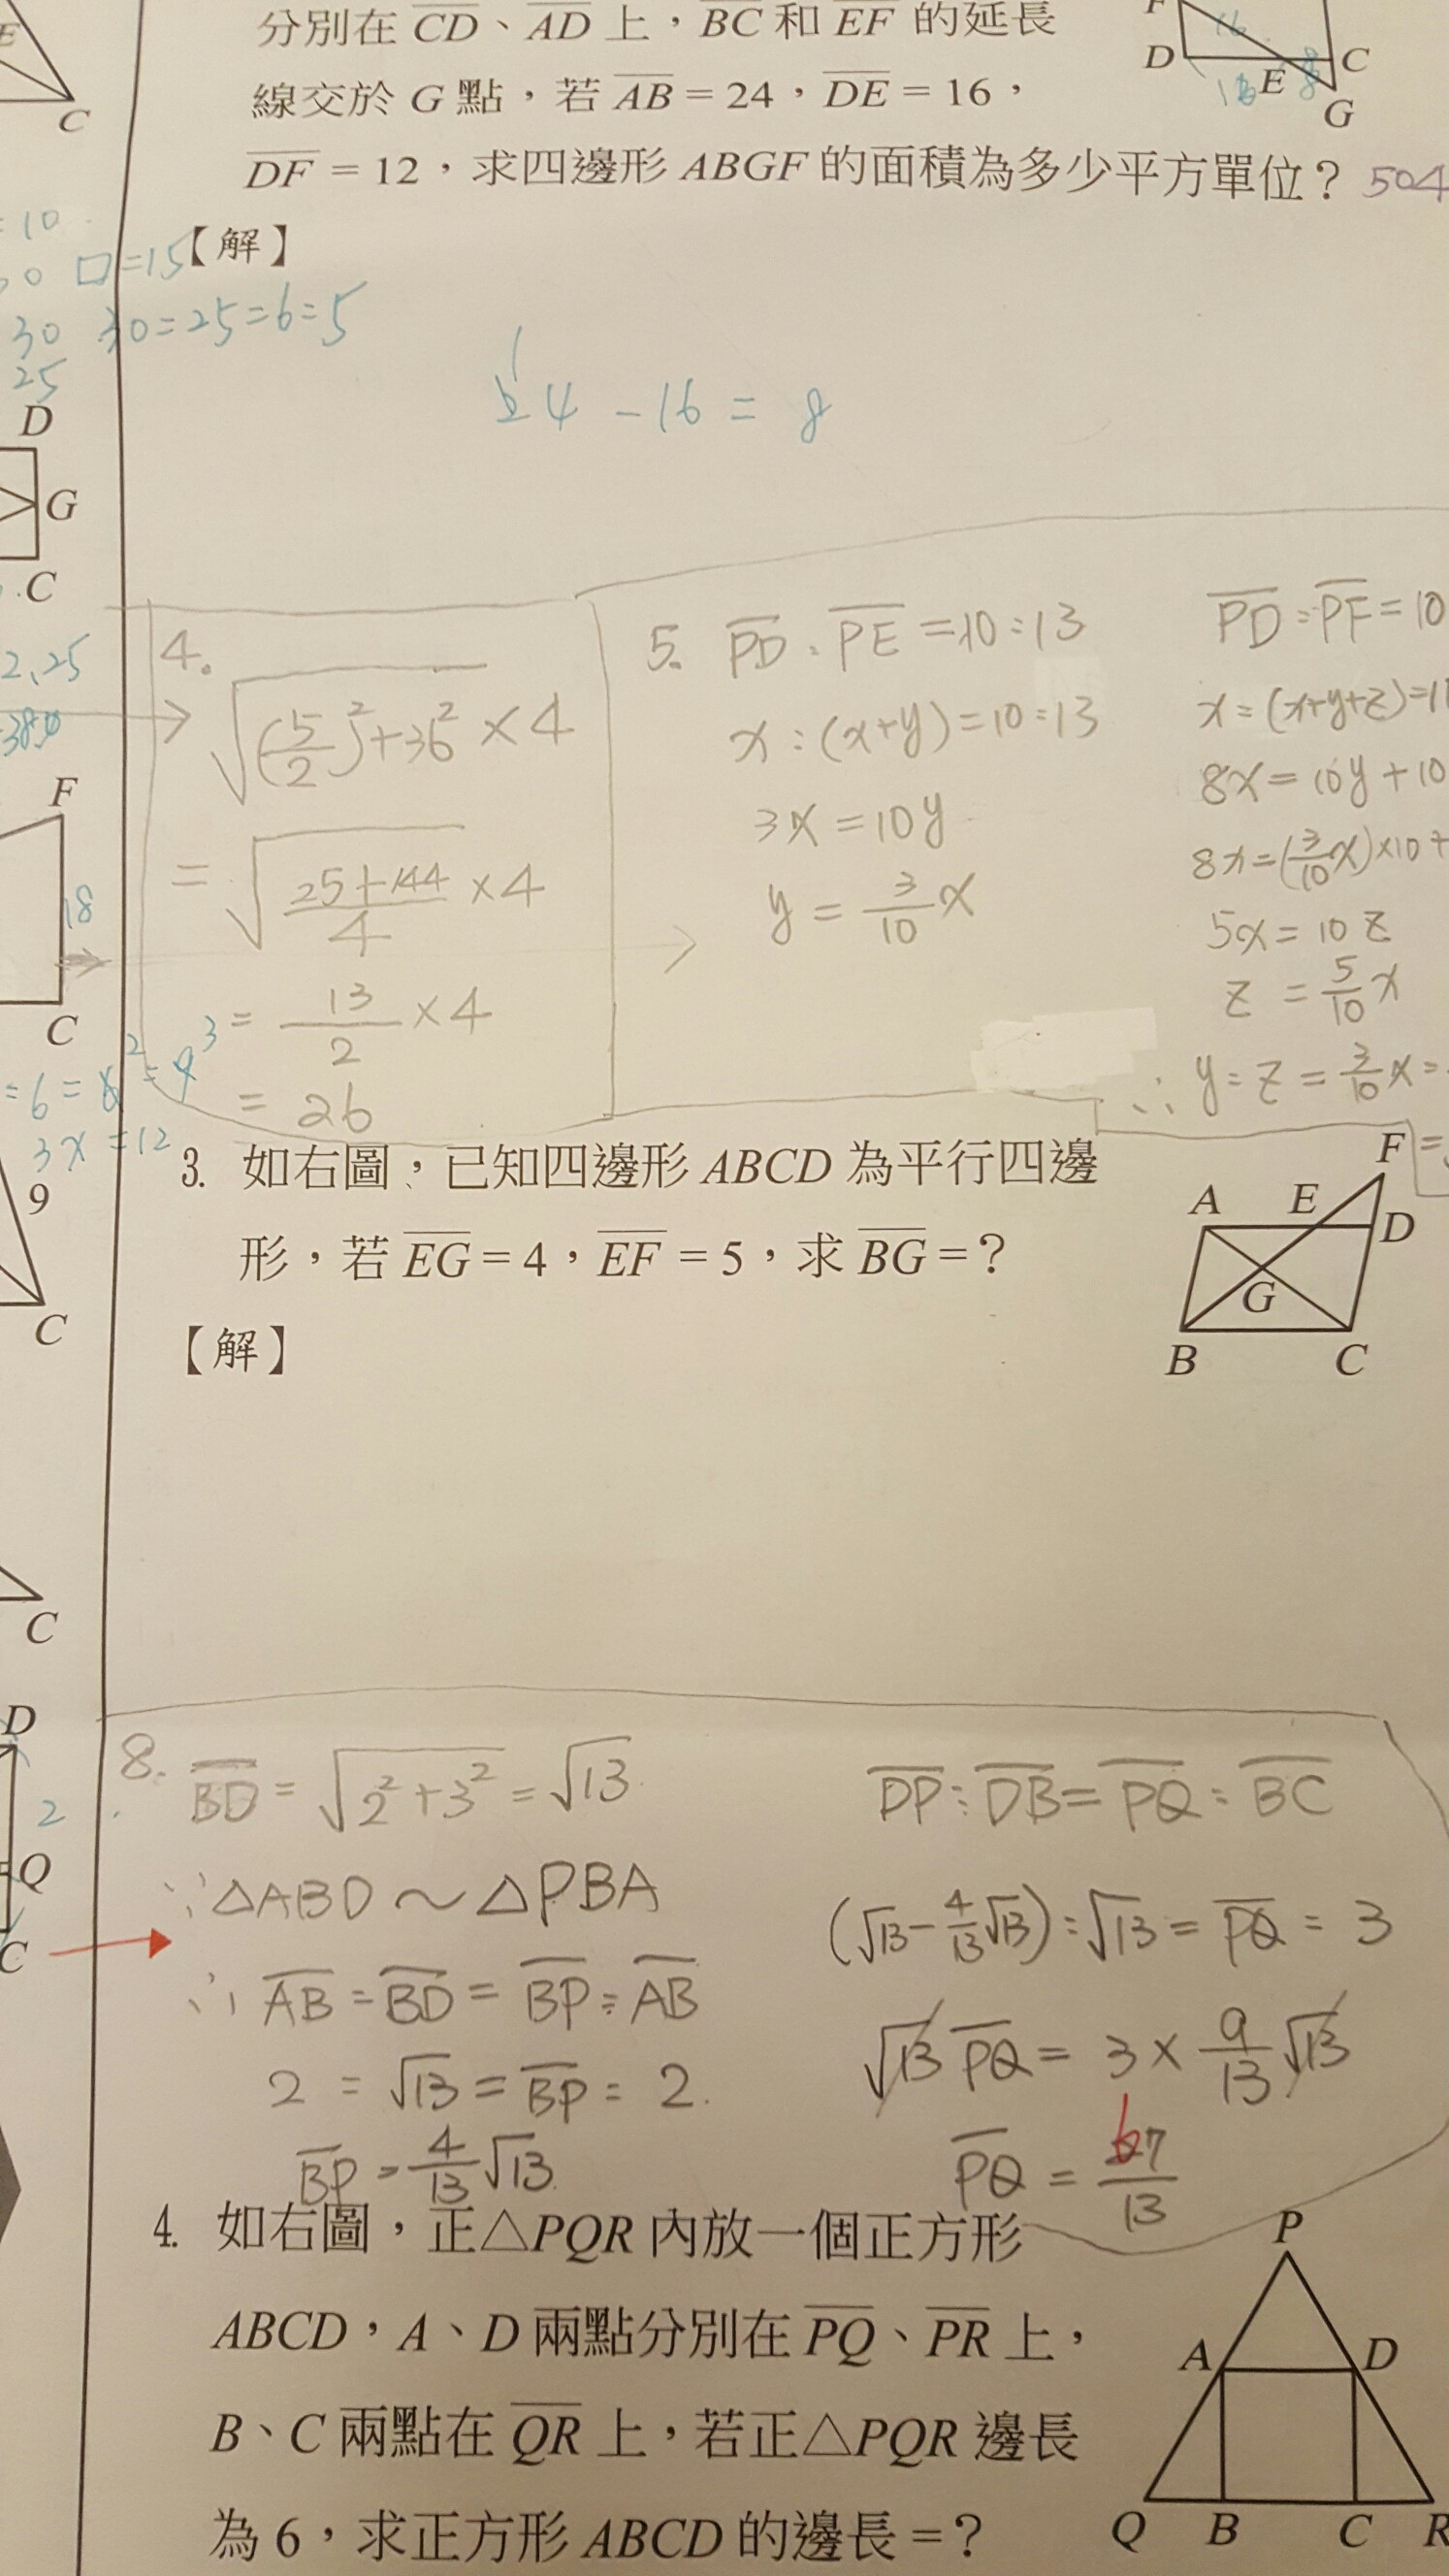 分別在 CD、AD 上，BC 和 EF 的延長
線交於 G 點，若 AB = 24，DE = 16，
DF = 12，求四邊形 ABGF 的面積為多少平方單位？ 504
【解】
F
16
D
E
C
18
8
G
E
C
= 10
□=15
30 30=25=6=5
25
24 - 16 = 8
D
G
C
2.25
F
18
C
=6=
3x = 12
9
C
C
D
2
Q
C
4.
√((5/2)²+36²) × 4
= √((25+144)/4) × 4
= 13/2 × 4
= 26
5. PD : PE = 10 : 13
x : (x+y) = 10 : 13
3x = 10y
y = 3/10 x
PD : PF = 10
x = (x+y+z) = 1
8x = 10y + 10
8x = (3/10 x) × 10 +
5x = 10z
z = 5/10 x
∴ y : z = 3/10 x :
3. 如右圖，已知四邊形 ABCD 為平行四邊
形，若 EG = 4，EF = 5，求 BG = ？
【解】
F
A
E
D
G
B
C
8. BD = √(2²+3²) = √13
∵ △ABD ~ △PBA
∴ AB : BD = BP : AB
2 : √13 = BP : 2
BP = 4/13 √13
DP : DB = PQ : BC
(√13 - 4/13 √13) : √13 = PQ : 3
√13 PQ = 3 × 9/13 √13
4. 如右圖，正△PQR 內放一個正方形
ABCD，A、D 兩點分別在 PQ、PR 上，
B、C 兩點在 QR 上，若正△PQR 邊長
為 6，求正方形 ABCD 的邊長 = ？
P
A
D
Q
B
C
R